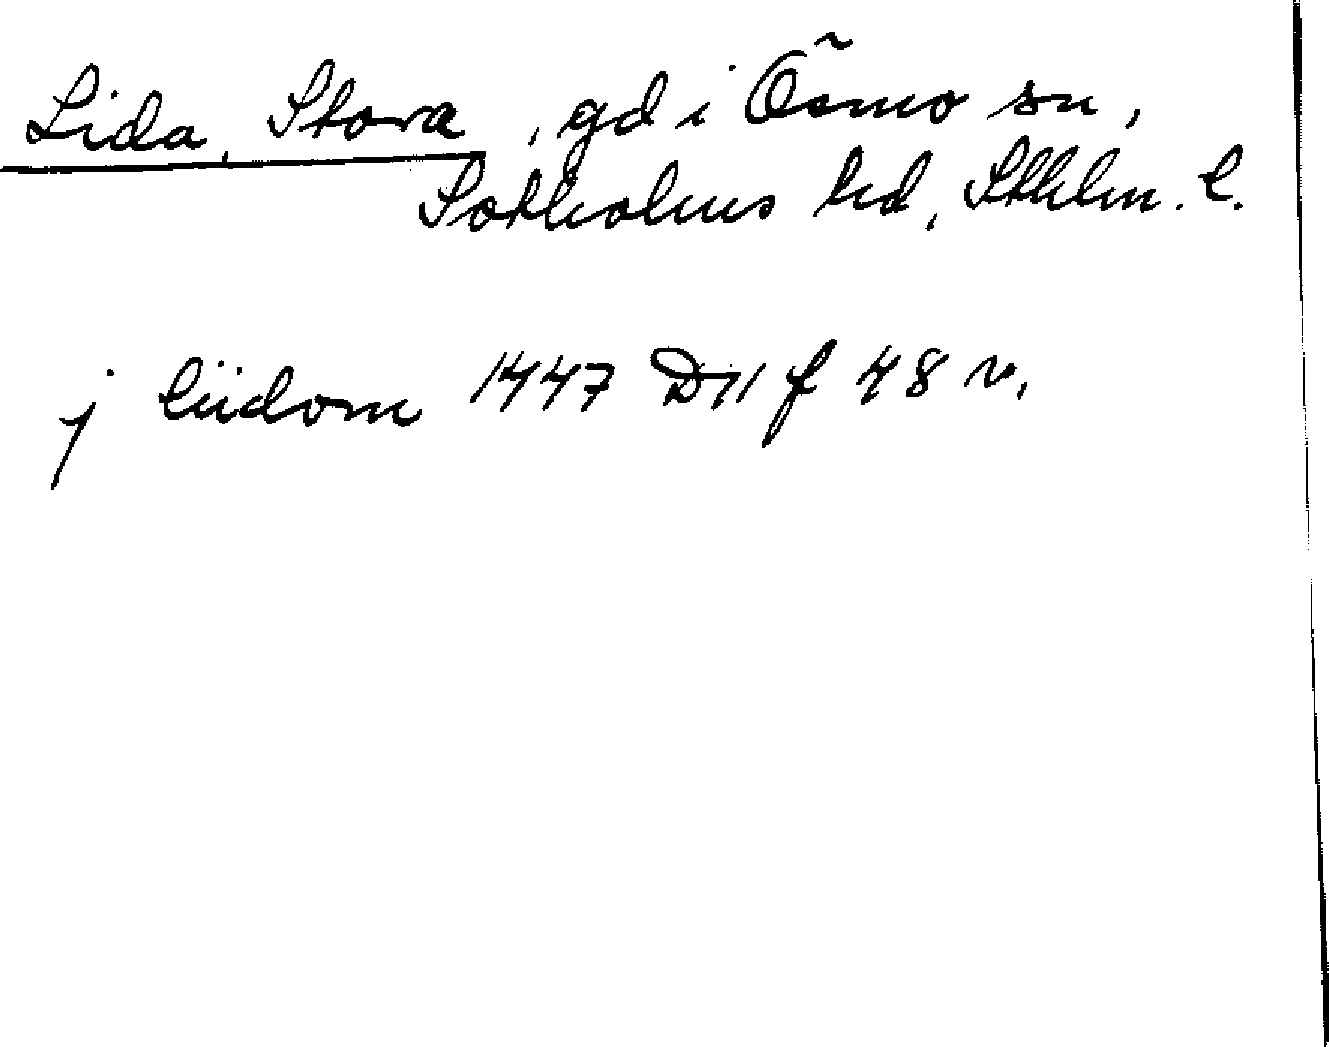 Lida, Stora, gd i Ösmo sn,
Sotholms hd, Sthlm. l.
j liidom 1447 D11 f 48 v.